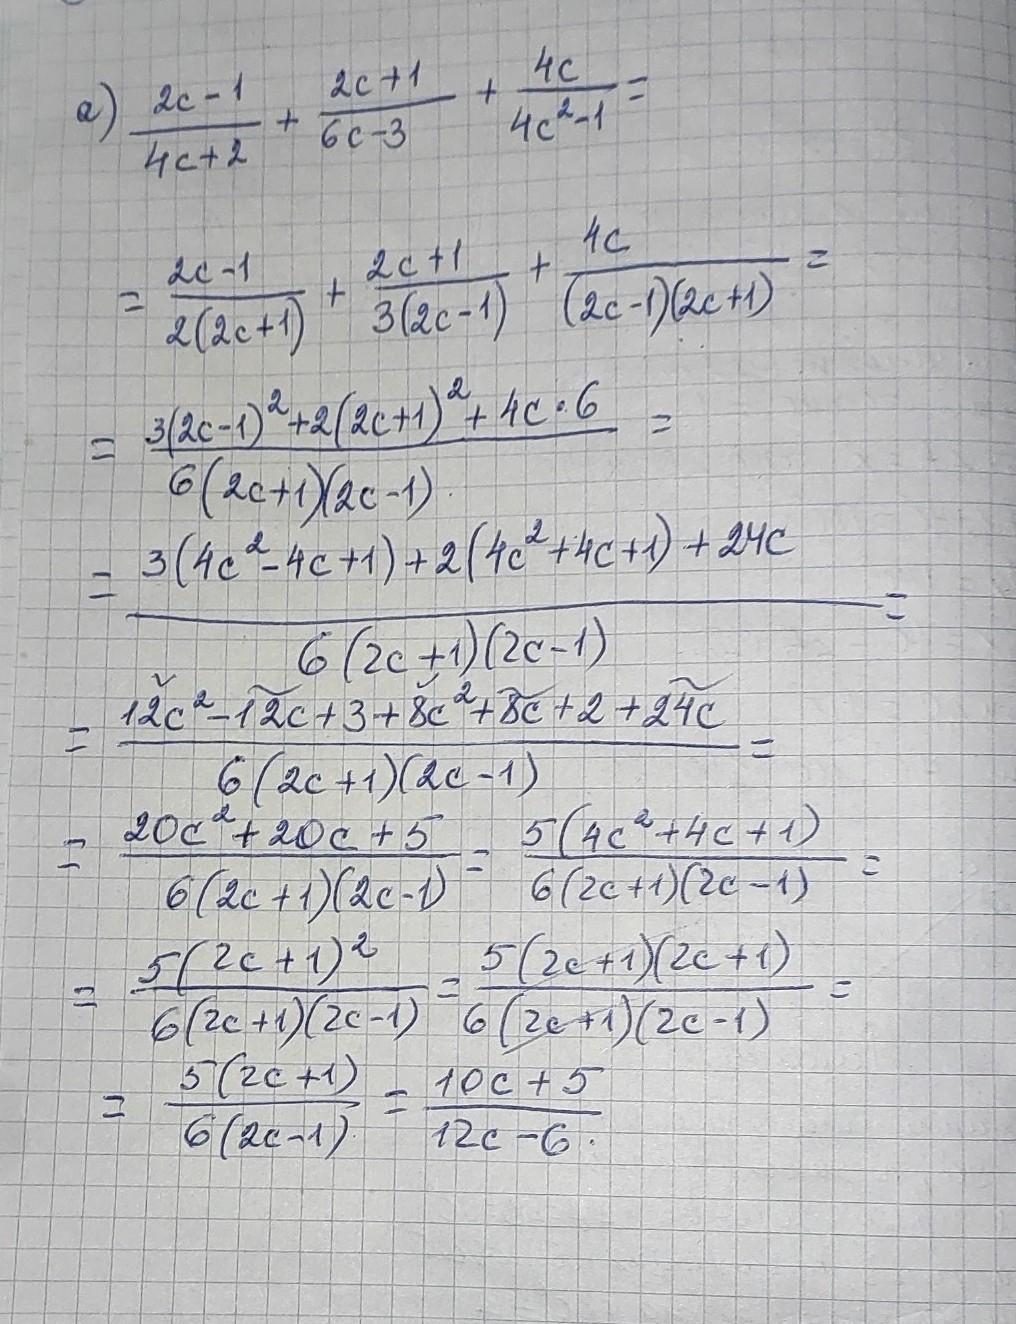 а) (2c-1)/(4c+2) + (2c+1)/(6c-3) + 4c/(4c²-1) =
= (2c-1)/(2(2c+1)) + (2c+1)/(3(2c-1)) + 4c/((2c-1)(2c+1)) =
= (3(2c-1)²+2(2c+1)²+4c·6)/(6(2c+1)(2c-1)) =
= (3(4c²-4c+1)+2(4c²+4c+1)+24c)/(6(2c+1)(2c-1)) =
= (12c²-12c+3+8c²+8c+2+24c)/(6(2c+1)(2c-1)) =
= (20c²+20c+5)/(6(2c+1)(2c-1)) = (5(4c²+4c+1))/(6(2c+1)(2c-1)) =
= (5(2c+1)²)/(6(2c+1)(2c-1)) = (5(2c+1)(2c+1))/(6(2c+1)(2c-1)) =
= (5(2c+1))/(6(2c-1)) = (10c+5)/(12c-6).